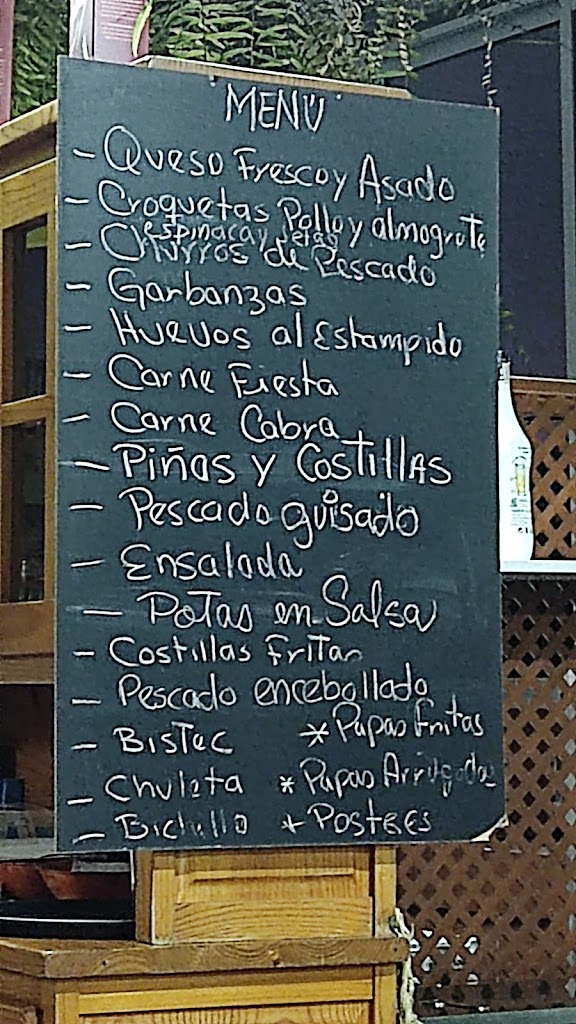 MENÚ
- Queso Fresco y Asado
- Croquetas Pollo y almogrote
Espinaca y Setas
- Churros de Pescado
- Garbanzas
- Huevos al Estampido
- Carne Fiesta
- Carne Cabra
- Piñas y Costillas
- Pescado guisado
- Ensalada
- Potas en Salsa
- Costillas Fritas
- Pescado encebollado
- Bistec * Papas Fritas
- Chuleta * Papas Arrugadas
- * Postres